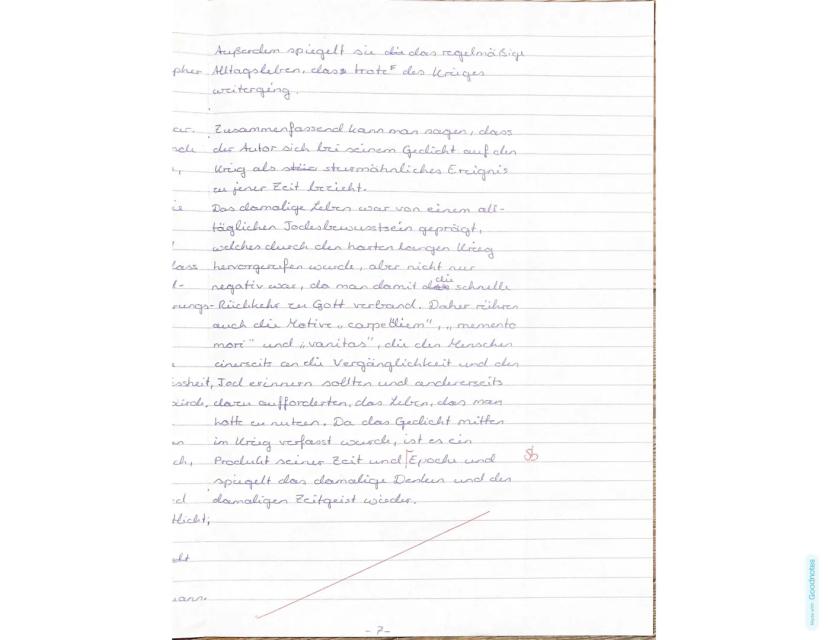 Außerdem spiegelt sie die das regelmäßige
pher Alltagsleben, dass trotz des Krieges
weiterging.
Zusammenfassend kann man sagen, dass
der Autor sich bei seinem Gedicht auf den
Krieg als sturmähnliches Ereignis
zu jener Zeit bezieht.
Das damalige Leben war von einem all-
täglichen Todesbewusstsein geprägt,
welches durch den harten langen Krieg
lass hervorgerufen wurde, aber nicht nur
die
negativ war, da man damit schnelle
rungs- Rückkehr zu Gott verband. Daher rühren
auch die Motive „carpe diem", „memento
mori" und „vanitas", die den Menschen
einerseits an die Vergänglichkeit und den
issheit, Tod erinnern sollten und andererseits
dazu aufforderten, das Leben, das man
hatte zu nutzen. Da das Gedicht mitten
im Krieg verfasst wurde, ist es ein
ch, Produkt seiner Zeit und Epoche und
spiegelt das damalige Denken und den
damaligen Zeitgeist wieder.
tlicht,
- 7 -
Made with Goodnotes